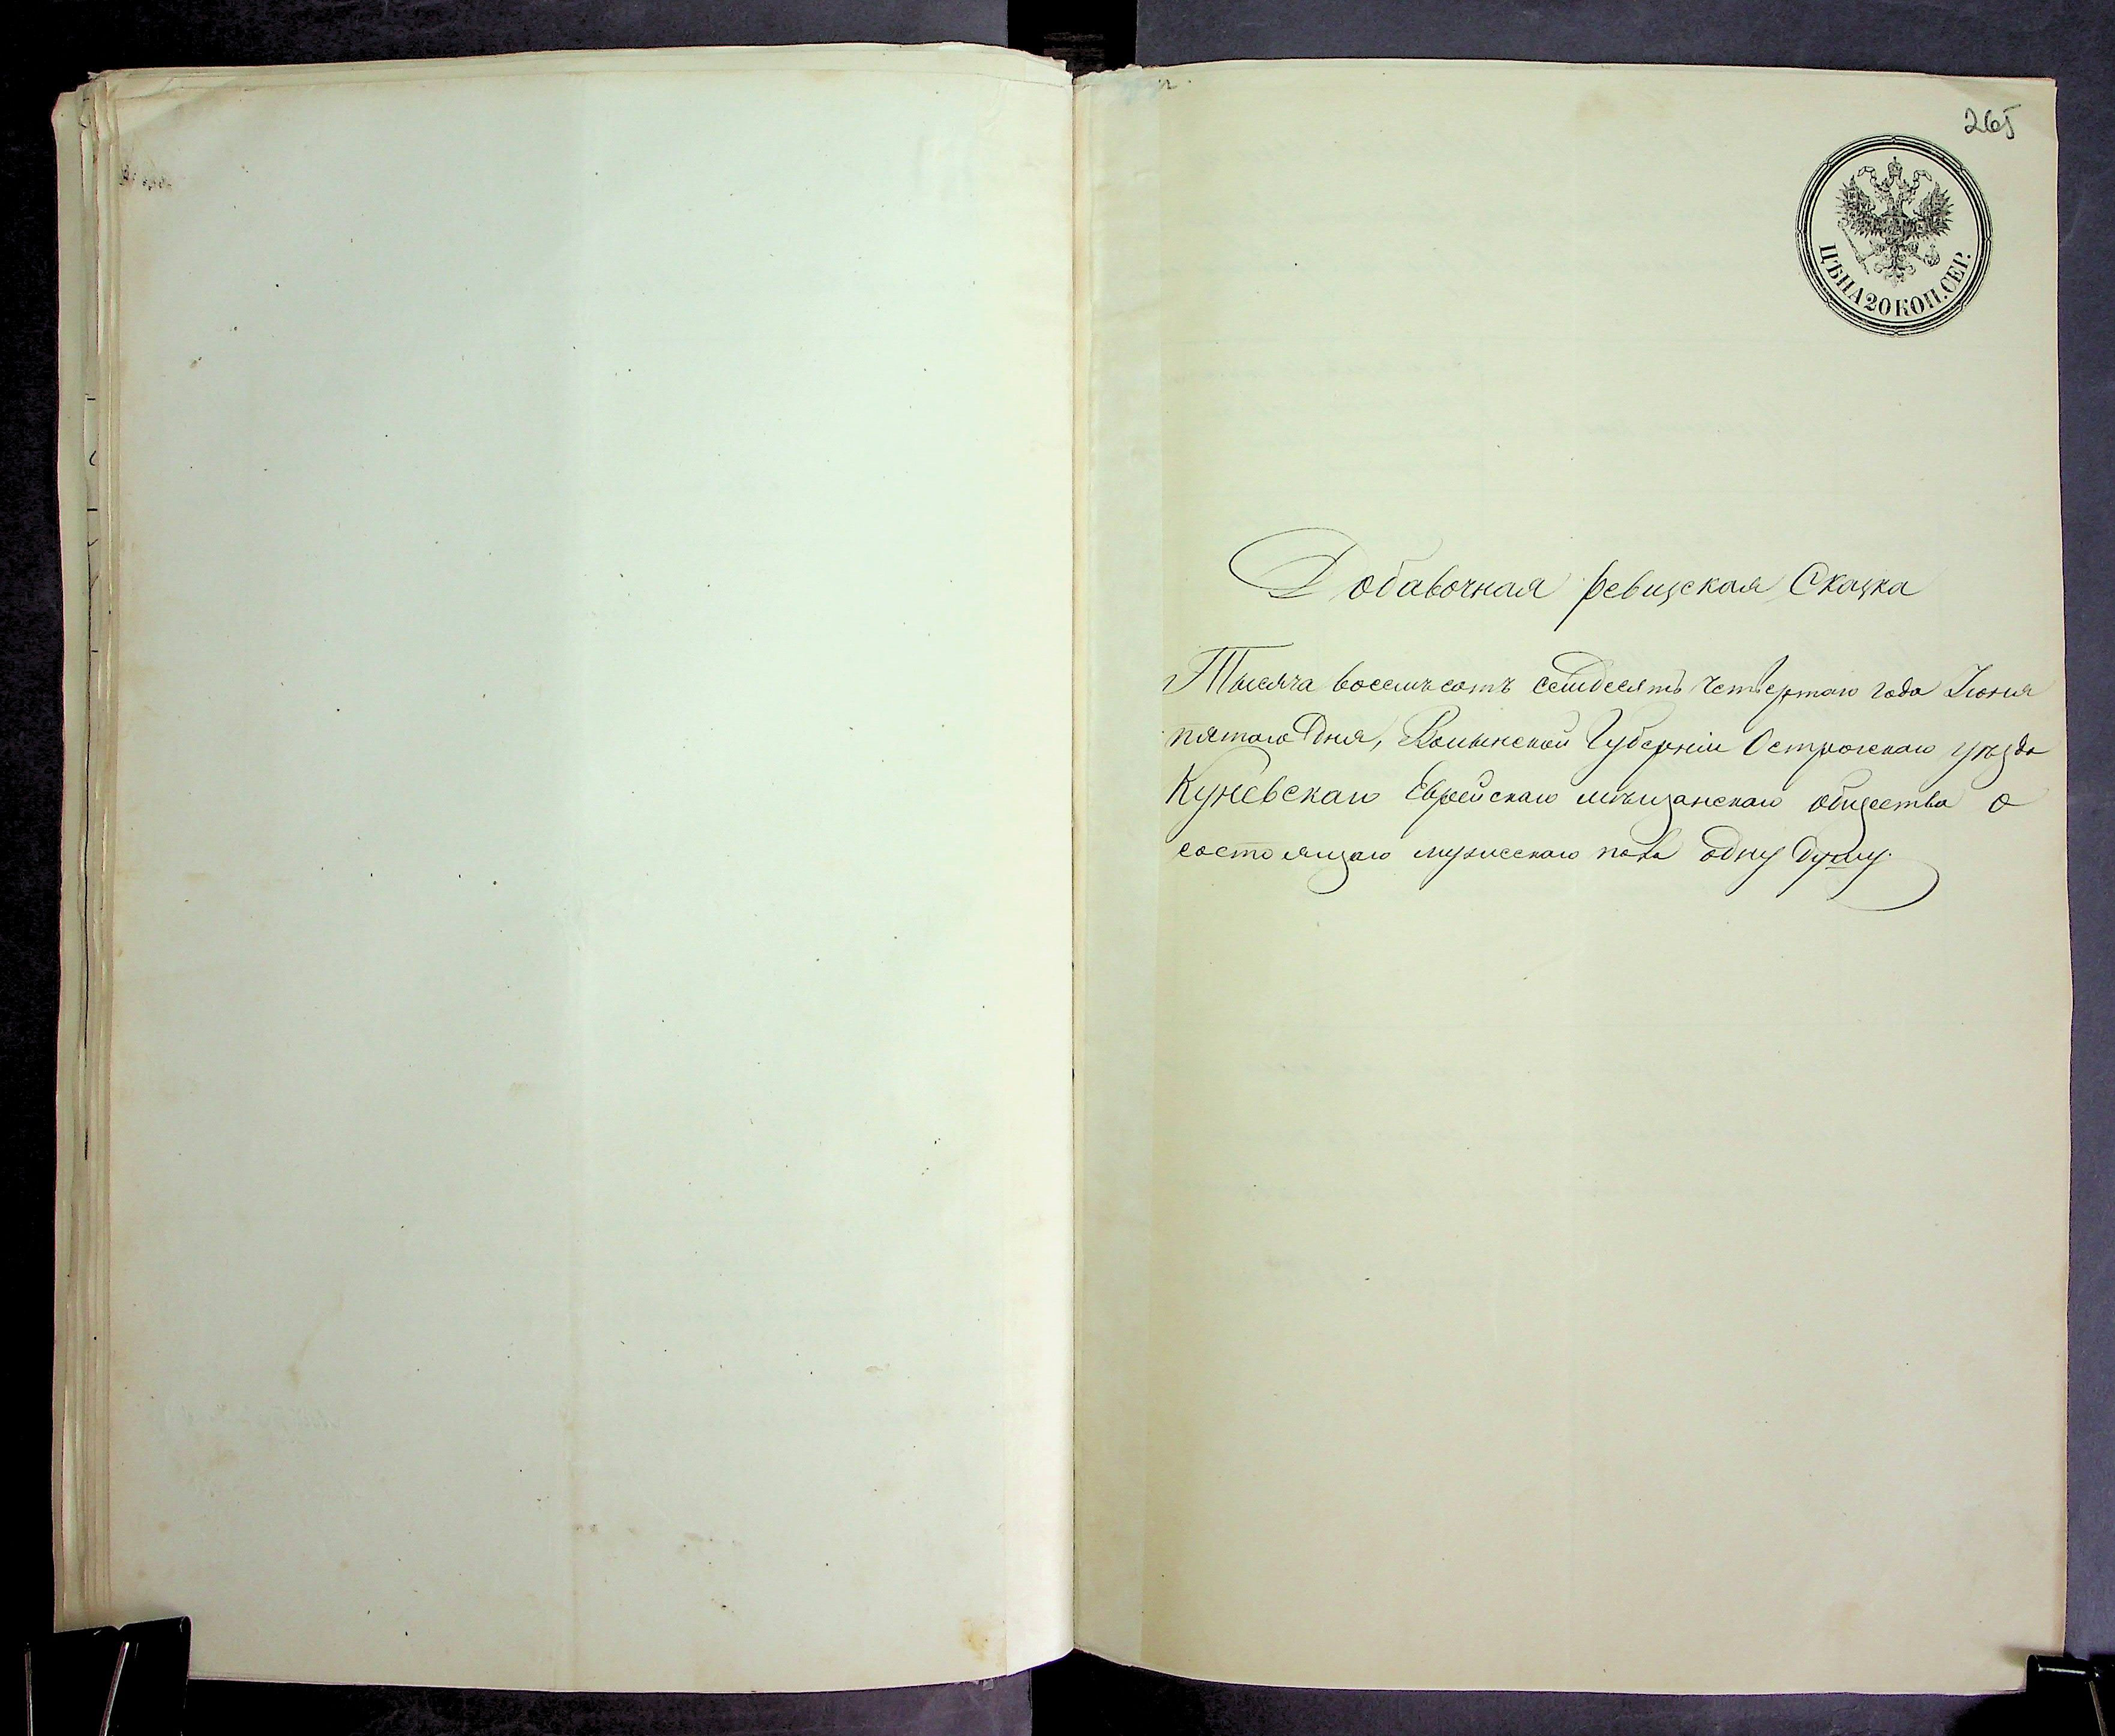 265
ЦѢНА 20 КОП. СЕР.
Добавочная ревизская Сказка
Тысяча восемьсотъ семдесятъ четвертаго года Іюня
пятого Дня, Волынской Губерніи Острогскаго уѣзда
Куневскаго Еврейскаго мѣщанскаго общества о
состоящаго мужескаго пола одну душу.